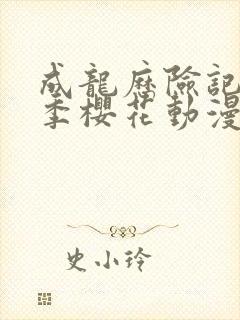 成龍歷險記
季櫻花動漫
史小玲